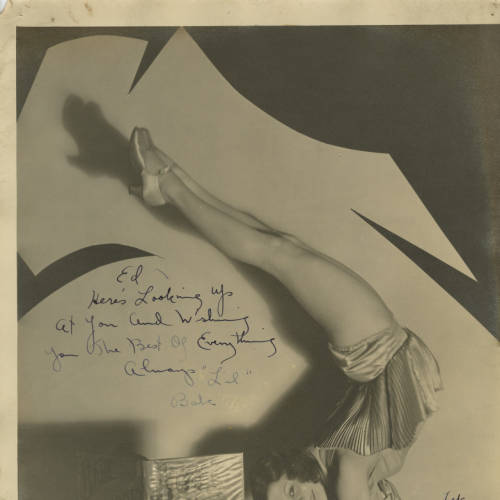 Ed
Here's Looking Up
At You And Wishing
You The Best Of Everything
Always "Lil"
Babs